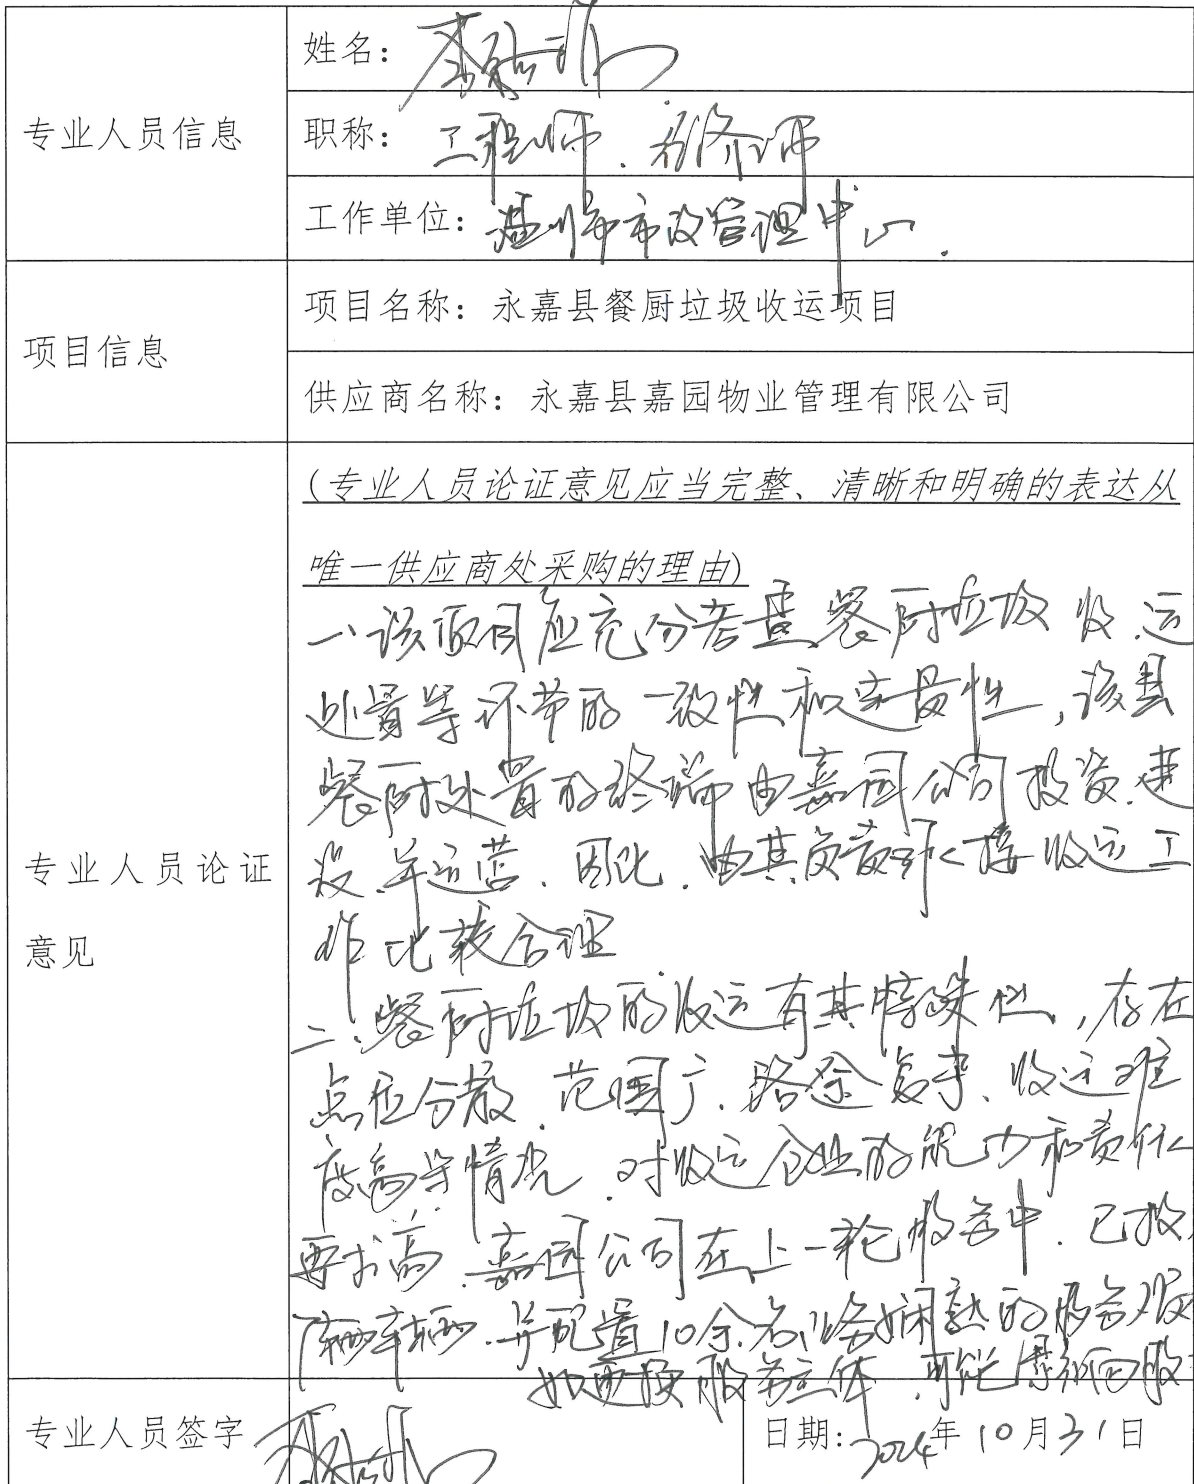 姓名：李
专业人员信息
职称：工程师、经济师
工作单位：温州市市政管理中心.
项目信息
项目名称：永嘉县餐厨垃圾收运项目
供应商名称：永嘉县嘉园物业管理有限公司
专业人员论证
意见
(专业人员论证意见应当完整、清晰和明确的表达从
唯一供应商处采购的理由)
一、该项目应充分考虑餐厨垃圾收、运
处置等环节的一致性和连贯性，该县
餐厨处置的终端由嘉园公司投资、建
设、并运营、因此、由其负责承接收运工
作比较合理
二、餐厨垃圾的收运有其特殊性，存在
点位分散、范围广、路途复杂、收运难
度高等情况、对收运企业的能力和责任
要求高、嘉园公司在上一轮服务中、已投
辆车辆、并配置10余名业务娴熟的服务
如更换服务主体、可能影响服
专业人员签字
日期：2024年10月31日